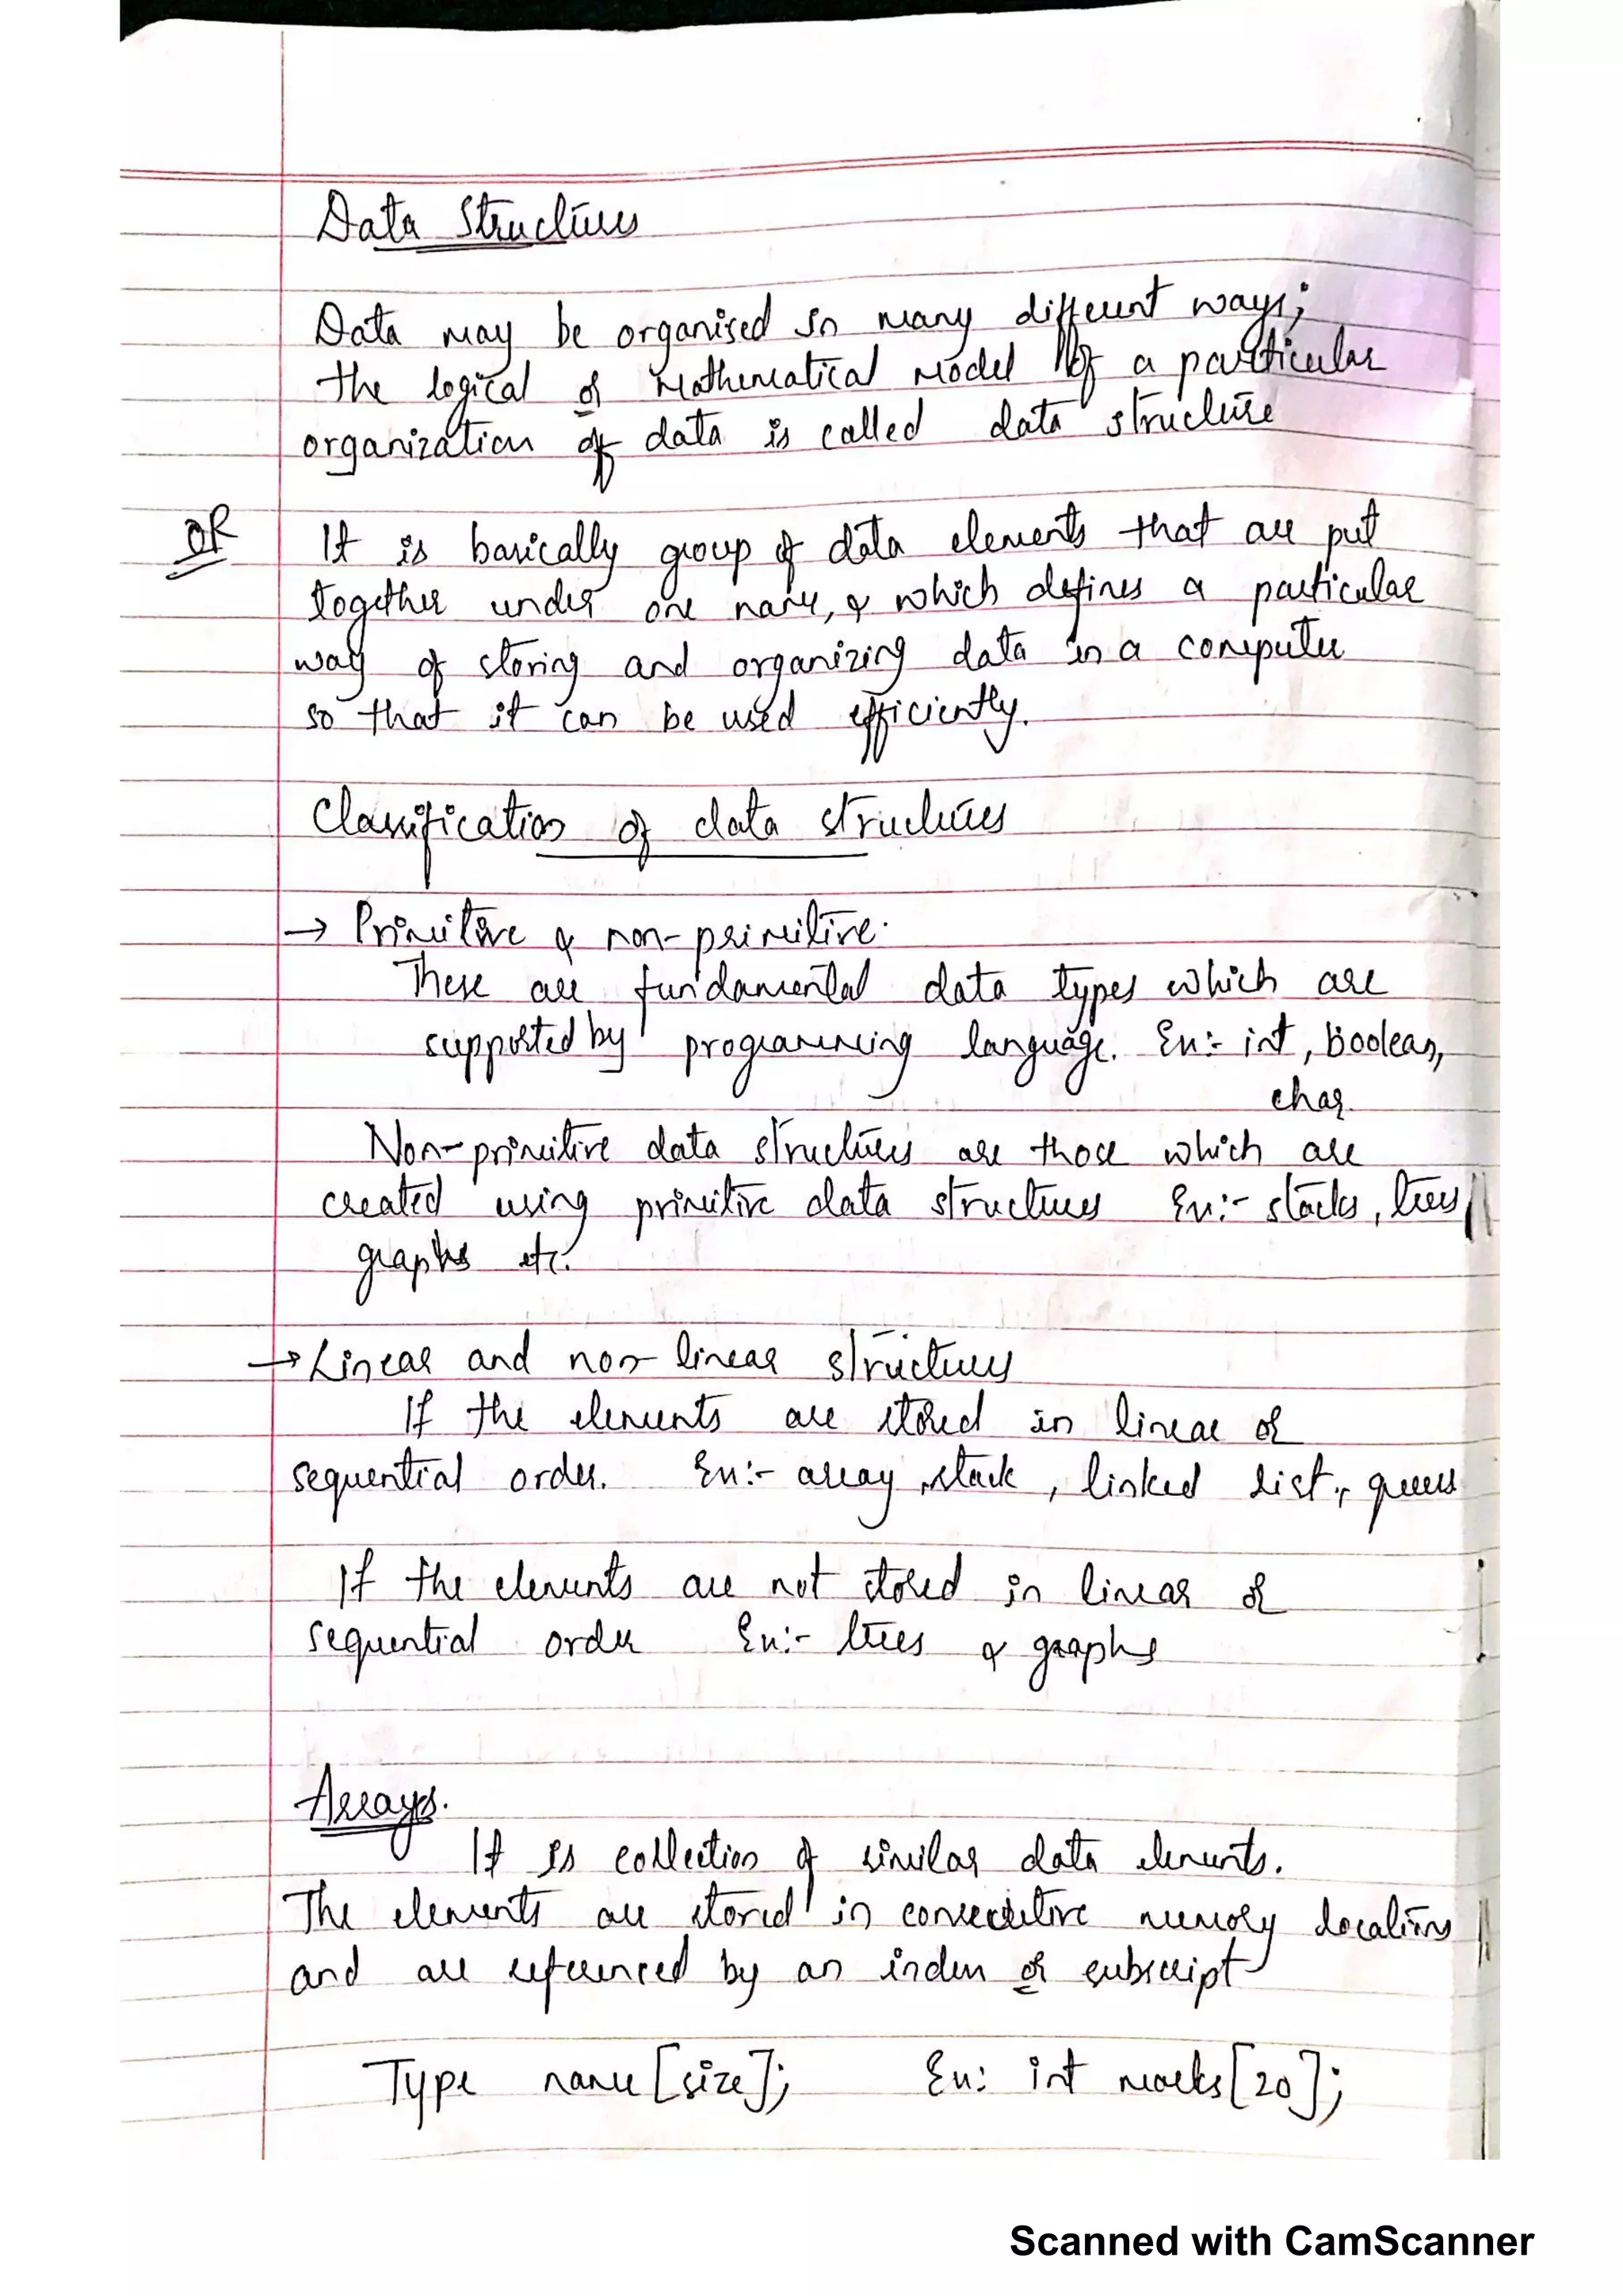 Data Structures
Data may be organised in many different ways;
the logical or Mathematical model of a particular
organization of data is called data structure
OR
It is basically group of data elements that are put
together under one name, & which defines a particular
way of storing and organizing data in a computer
so that it can be used efficiently.
Classification of data structures
→ Primitive & non-primitive.
These are fundamental data types which are
supported by programming language. Ex:- int, boolean,
char.
Non-primitive data structures are those which are
created using primitive data structures Ex:- stacks, trees
graphs etc.
→ Linear and non-linear structures
If the elements are stored in linear or
sequential order. Ex:- array, stack, linked list, queues
If the elements are not stored in linear or
sequential order Ex:- trees & graphs
Arrays.
It is collection of similar data elements.
The elements are stored in consecutive memory locations
and are referenced by an index or subscript
Type name[size]; Ex: int marks[20];
Scanned with CamScanner